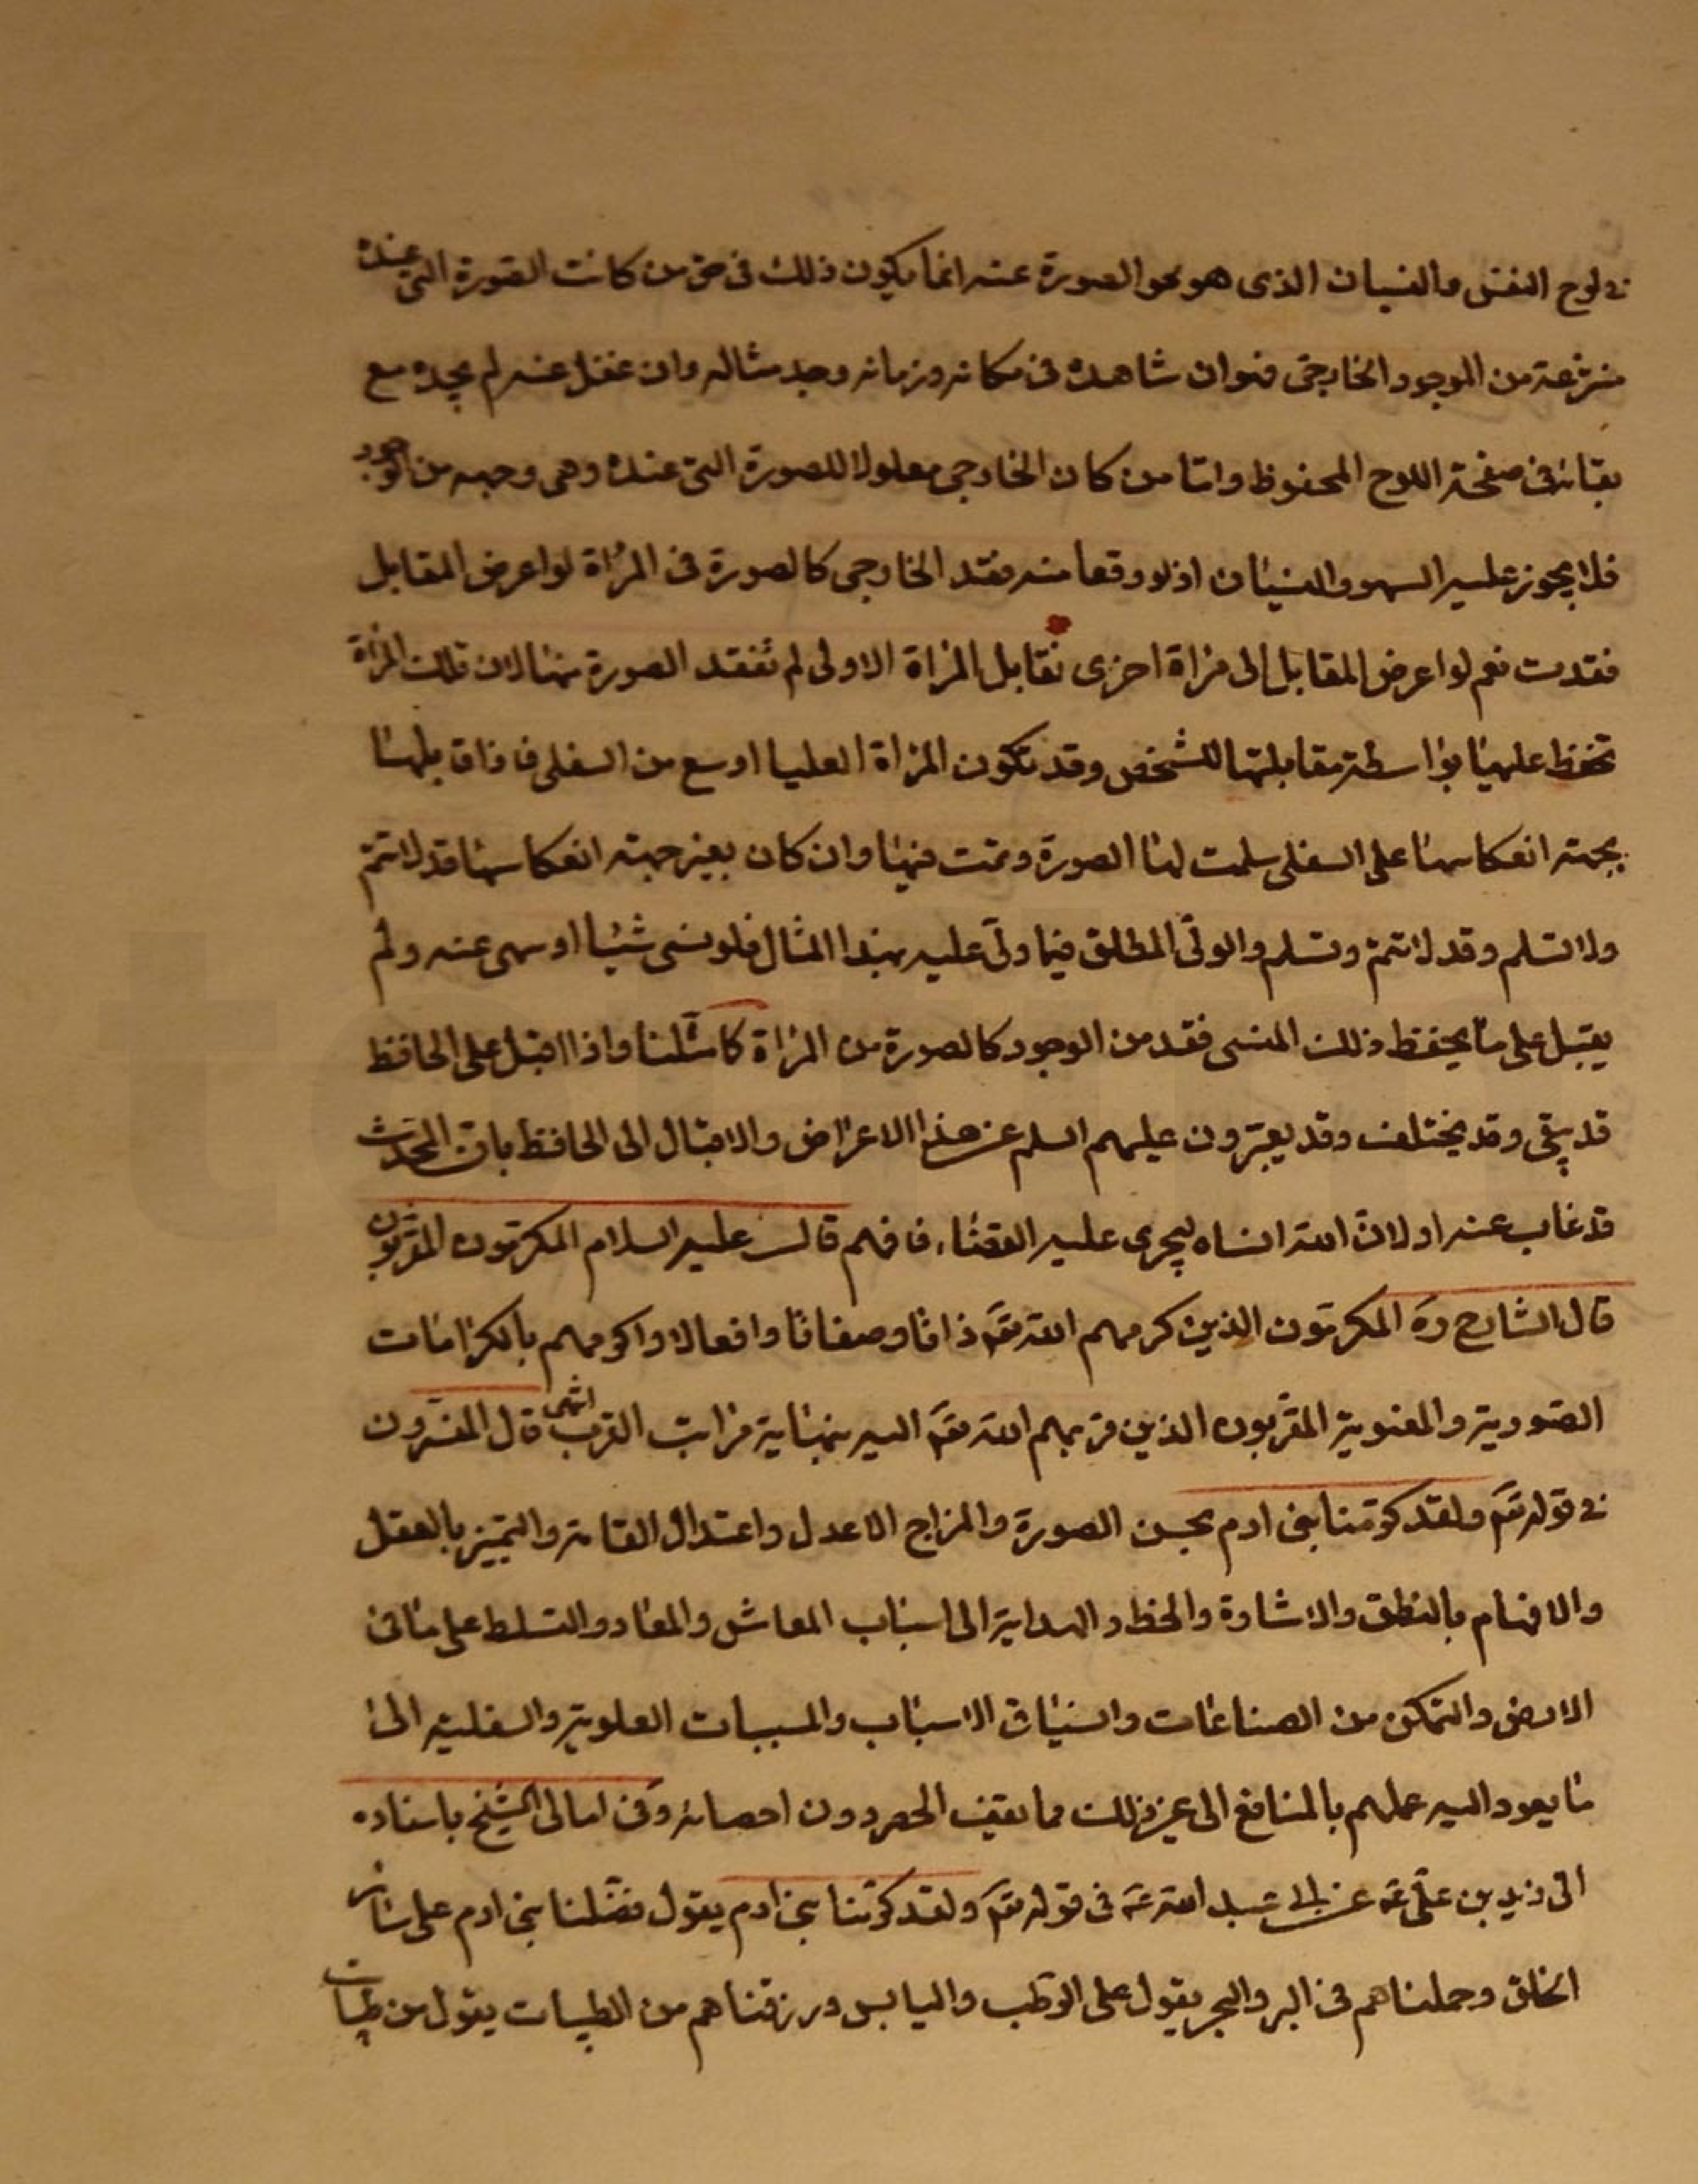 في لوح النفس والنسيان الذى هو محو الصورة عنه انما يكون ذلك فى حق من كانت الصورة التى عنده
منتزعة من الموجود الخارجى فهو ان شاهده فى مكانه وزمانه وجد مثاله وان غفل عنه لم يجده مع
بقائه فى صفحة اللوح المحفوظ وامّا من كان الخارجى معلولا للصورة التى عنده وهى وجهه من الوجود
فلا يجوز عليه السهو والنسيان اذ لو وقعا منه فقد الخارجى كالصورة فى المرءاة لو اعرض المقابل
فقدت نعم لو اعرض المقابل الى مرءاة اخرى تقابل المرءاة الاولى لم تفقد الصورة منها لان تلك المرءاة
تحفظ عليها بواسطة مقابلتها للشخص وقد تكون المرءاة العليا اوسع من السفلى فاذا قابلها
بجهة انعكاسها على السفلى سلمت لها الصورة وتمت فيها وان كان بغير جهة انعكاسها قد لا تتمّ
ولا تسلم وقد لا تتمّ وتسلم والولىّ المطلق فيما ولّى عليه بهذا المثال فلو نسى شيئا او سهى عنه ولم
يقبل على ما يحفظ ذلك المنسى فقد من الوجود كالصورة من المرءاة كما مثّلنا واذا اقبل على الحافظ
قد يبقى وقد يختلف وقد يعبّرون عليهم السلم عن هذا الاعراض والاقبال الى الحافظ بانّ المحدّث
قد غاب عنه او لانّ الله انساه ليجرى عليه القضاء، فافهم قال عليه السلام المكرّمون المقرّبون
قال الشارح ره المكرّمون الذين كرمهم الله تعٓ ذاتا وصفاتا وافعالا واكرمهم بالكرامات
الصّوريّة والمعنويّة المقرّبون الذين قربهم الله تعٓ اليه بنهاية مراتب القرب انتهى قال المفسّرون
في قوله تعٓ ولقد كرّمنا بنى ادم بحسن الصورة والمزاج الاعدل واعتدال القامة والتميّز بالعقل
والافهام بالنطق والاشارة والخط والهداية الى اسباب المعاش والمعاد والتسلط على ما فى
الارض والتمكن من الصناعات وانسياق الاسباب والمسببات العلوية والسفلية الى
ما يعود اليه عملهم بالمنافع الى غير ذلك مما يقف الحصر دون احصائه وفى امالى الشيخ باسناده
الى زيد بن علىّ عٓ عن ابى عبد الله عٓ فى قوله تعٓ ولقد كرّمنا بنى ادم يقول فضّلنا بنى ادم على سائر
الخلق وحملناهم فى البر والبحر يقول على الرّطب واليابس ورزقناهم من الطيبات يقول من طيبات